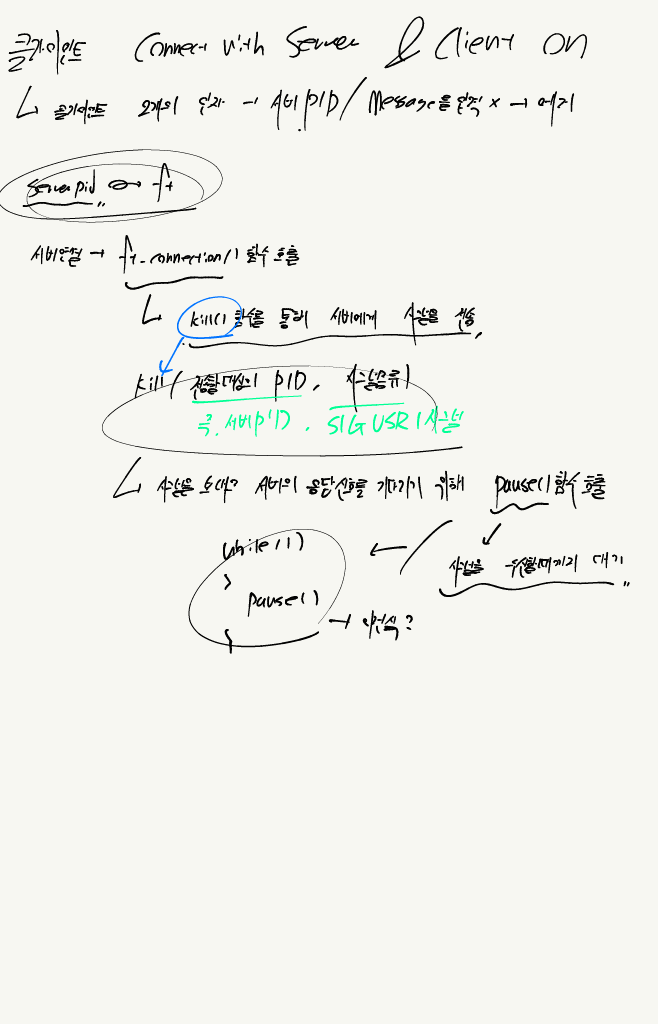 클라이언트 Connect with Server & Client on
ㄴ 클라이언트 2개의 인자 → 서버 PID / Message을 인식 x → 에러
Server pid ft
서버연결 → ft_connection() 함수 호출
ㄴ kill() 함수를 통해 서버에게 시그널을 전송
kill( 전송할 대상의 PID, 시그널종류)
즉, 서버PID, SIGUSR1 시그널
ㄴ 시그널을 보내고 서버의 응답신호를 기다리기 위해 pause() 함수 호출
while(1) ← 시그널을 수신할때까지 대기
{
pause()
} → 이런식?